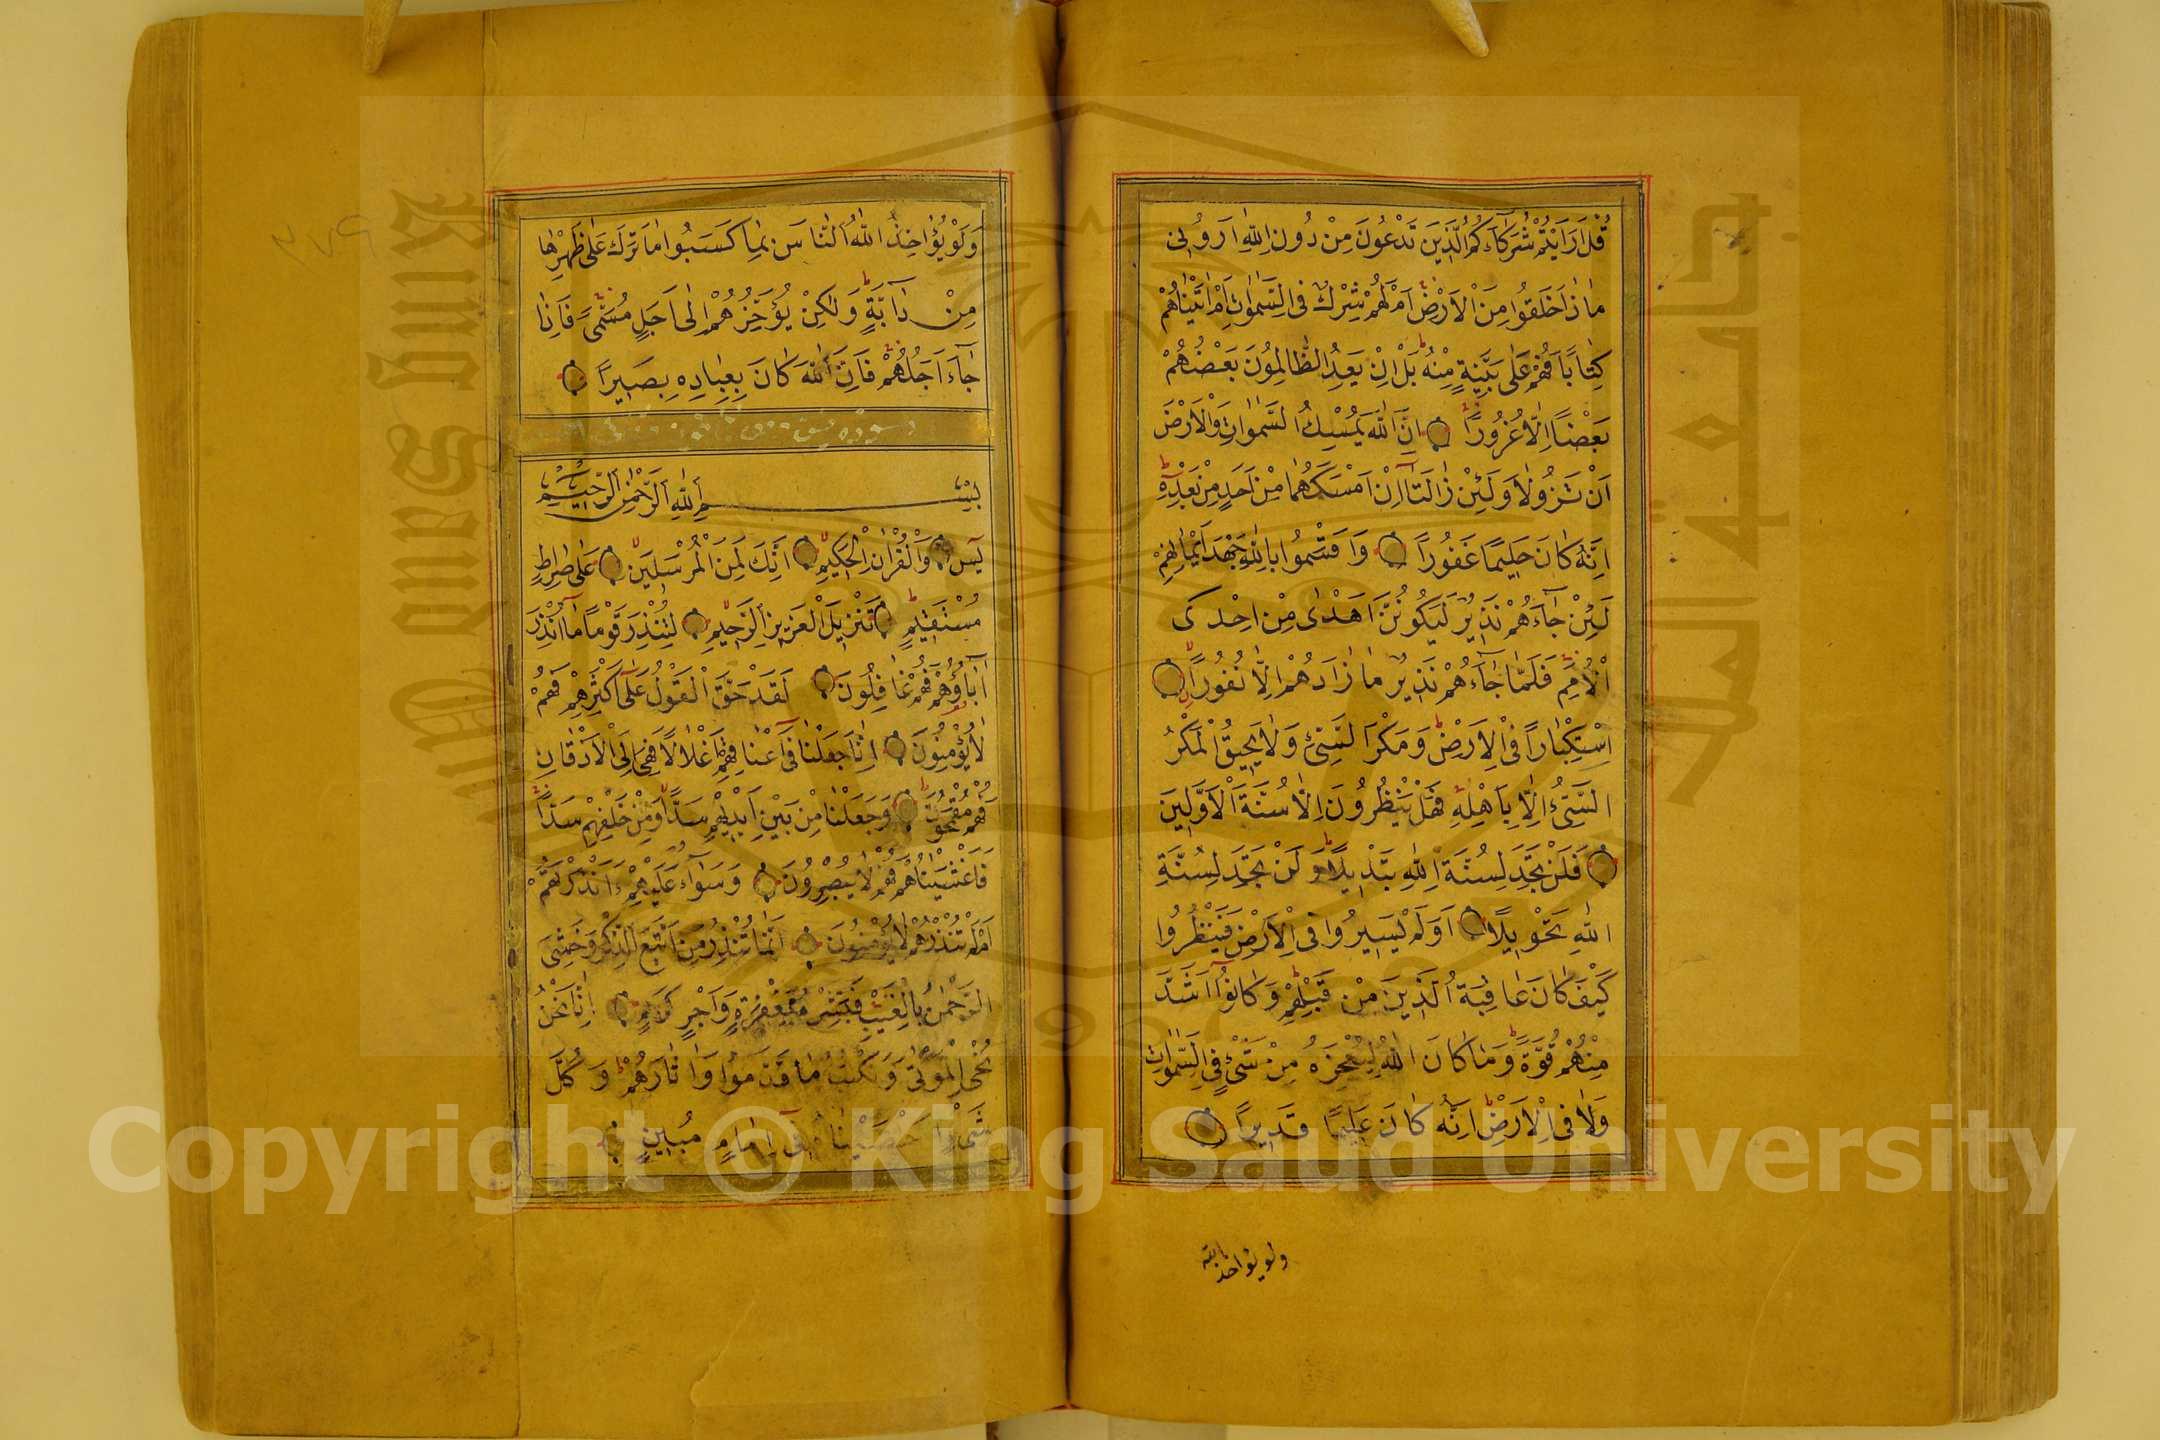 قُلْ اَرَاَيْتُمْ شُرَكَآءَكُمُ الَّذِينَ تَدْعُونَ مِنْ دُونِ اللّٰهِ اَرُونِى
مَاذَا خَلَقُوا مِنَ الْاَرْضِ اَمْ لَهُمْ شِرْكٌ فِى السَّمٰوَاتِ اَمْ اٰتَيْنَاهُمْ
كِتَابًا فَهُمْ عَلٰى بَيِّنَةٍ مِنْهُ بَلْ اِنْ يَعِدُ الظَّالِمُونَ بَعْضُهُمْ
بَعْضًا اِلَّا غُرُورًا اِنَّ اللّٰهَ يُمْسِكُ السَّمٰوَاتِ وَالْاَرْضَ
اَنْ تَزُولَا وَلَئِنْ زَالَتَا اِنْ اَمْسَكَهُمَا مِنْ اَحَدٍ مِنْ بَعْدِهِ
اِنَّهُ كَانَ حَلِيمًا غَفُورًا وَاَقْسَمُوا بِاللّٰهِ جَهْدَ اَيْمَانِهِمْ
لَئِنْ جَآءَهُمْ نَذِيرٌ لَيَكُونُنَّ اَهْدٰى مِنْ اِحْدَى
الْاُمَمِ فَلَمَّا جَآءَهُمْ نَذِيرٌ مَا زَادَهُمْ اِلَّا نُفُورًا
اسْتِكْبَارًا فِى الْاَرْضِ وَمَكْرَ السَّيِّئِ وَلَا يَحِيقُ الْمَكْرُ
السَّيِّئُ اِلَّا بِاَهْلِهِ فَهَلْ يَنْظُرُونَ اِلَّا سُنَّةَ الْاَوَّلِينَ
فَلَنْ تَجِدَ لِسُنَّةِ اللّٰهِ تَبْدِيلًا وَلَنْ تَجِدَ لِسُنَّةِ
اللّٰهِ تَحْوِيلًا اَوَلَمْ يَسِيرُوا فِى الْاَرْضِ فَيَنْظُرُوا
كَيْفَ كَانَ عَاقِبَةُ الَّذِينَ مِنْ قَبْلِهِمْ وَكَانُوا اَشَدَّ
مِنْهُمْ قُوَّةً وَمَا كَانَ اللّٰهُ لِيُعْجِزَهُ مِنْ شَىْءٍ فِى السَّمٰوَاتِ
وَلَا فِى الْاَرْضِ اِنَّهُ كَانَ عَلِيمًا قَدِيرًا
ولو يؤاخذ الله
وَلَوْ يُؤَاخِذُ اللّٰهُ النَّاسَ بِمَا كَسَبُوا مَا تَرَكَ عَلٰى ظَهْرِهَا
مِنْ دَآبَّةٍ وَلٰكِنْ يُؤَخِّرُهُمْ اِلٰى اَجَلٍ مُسَمًّى فَاِذَا
جَآءَ اَجَلُهُمْ فَاِنَّ اللّٰهَ كَانَ بِعِبَادِهِ بَصِيرًا
بِسْمِ اللّٰهِ الرَّحْمٰنِ الرَّحِيمِ
يٰسٓ وَالْقُرْاٰنِ الْحَكِيمِ اِنَّكَ لَمِنَ الْمُرْسَلِينَ عَلٰى صِرَاطٍ
مُسْتَقِيمٍ تَنْزِيلَ الْعَزِيزِ الرَّحِيمِ لِتُنْذِرَ قَوْمًا مَا اُنْذِرَ
اٰبَآؤُهُمْ فَهُمْ غَافِلُونَ لَقَدْ حَقَّ الْقَوْلُ عَلٰى اَكْثَرِهِمْ فَهُمْ
لَا يُؤْمِنُونَ اِنَّا جَعَلْنَا فِى اَعْنَاقِهِمْ اَغْلَالًا فَهِىَ اِلَى الْاَذْقَانِ
فَهُمْ مُقْمَحُونَ وَجَعَلْنَا مِنْ بَيْنِ اَيْدِيهِمْ سَدًّا وَمِنْ خَلْفِهِمْ سَدًّا
فَاَغْشَيْنَاهُمْ فَهُمْ لَا يُبْصِرُونَ وَسَوَآءٌ عَلَيْهِمْ ءَاَنْذَرْتَهُمْ
اَمْ لَمْ تُنْذِرْهُمْ لَا يُؤْمِنُونَ اِنَّمَا تُنْذِرُ مَنِ اتَّبَعَ الذِّكْرَ وَخَشِىَ
الرَّحْمٰنَ بِالْغَيْبِ فَبَشِّرْهُ بِمَغْفِرَةٍ وَاَجْرٍ كَرِيمٍ اِنَّا نَحْنُ
نُحْىِ الْمَوْتٰى وَنَكْتُبُ مَا قَدَّمُوا وَاٰثَارَهُمْ وَكُلَّ
شَىْءٍ اَحْصَيْنَاهُ فِى اِمَامٍ مُبِينٍ
King Saud University
جامعة الملك سعود
1957
Copyright © King Saud University